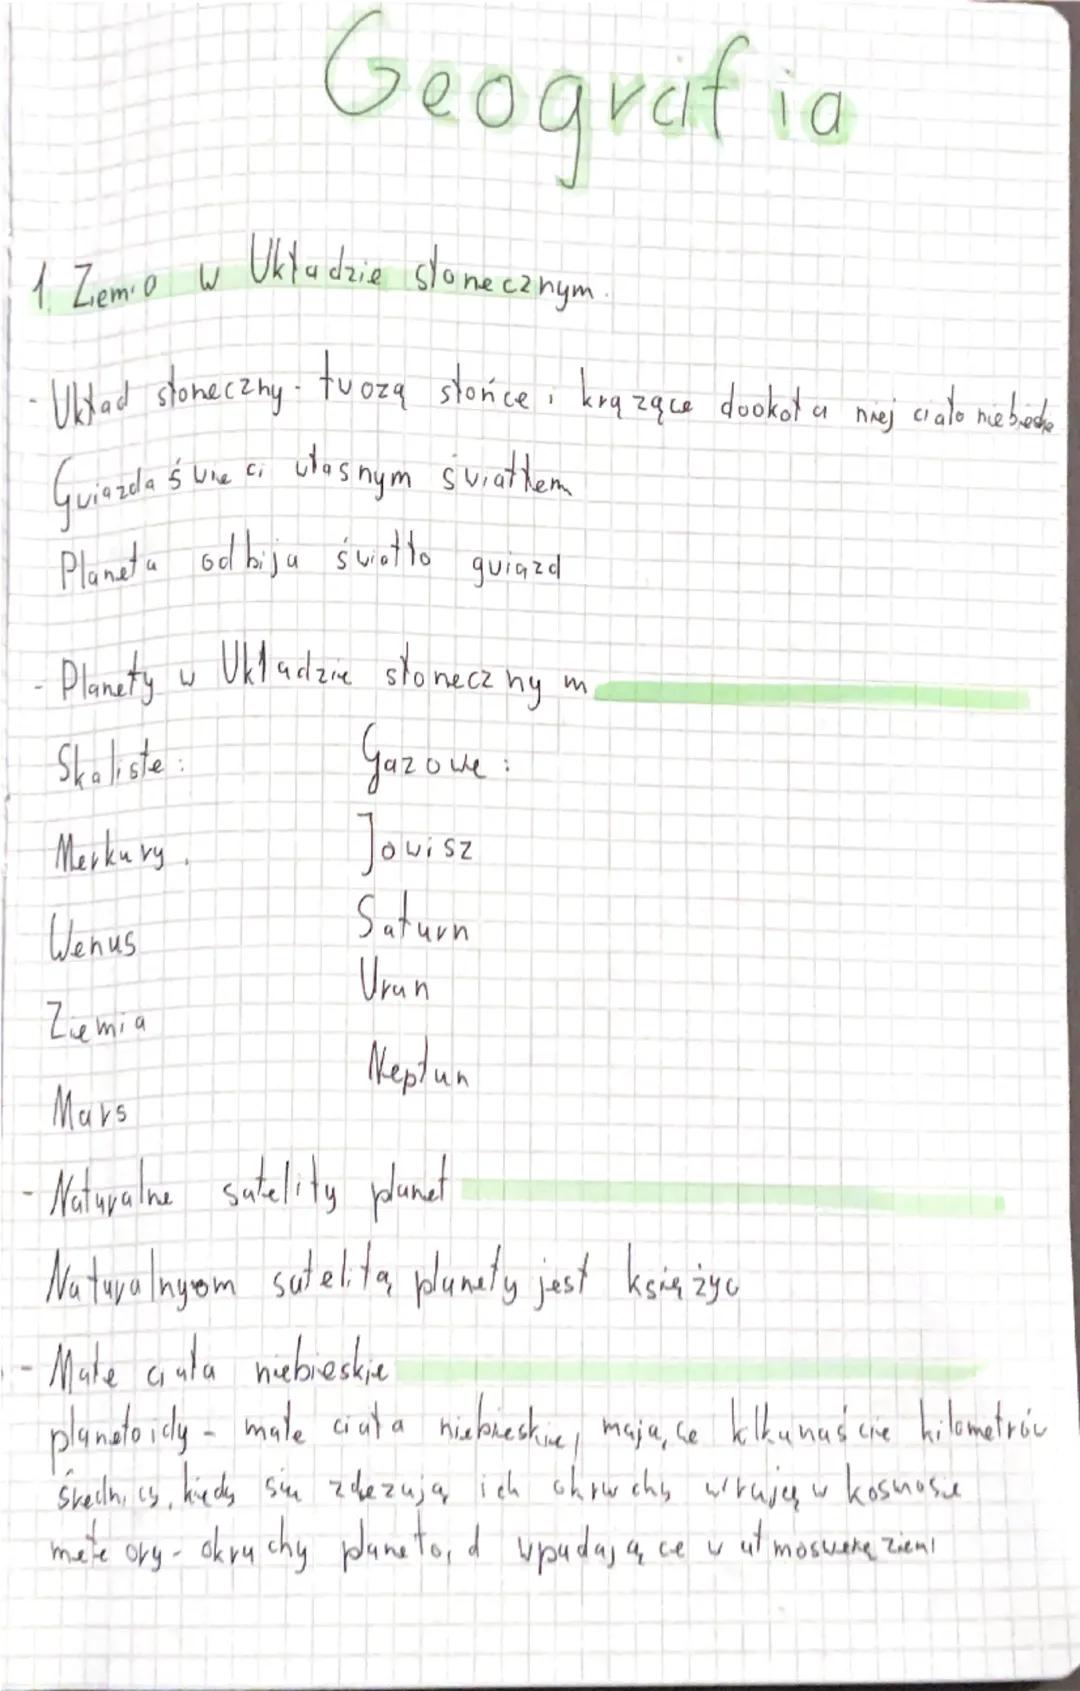 Geografia
1. Ziemia w Układzie słonecznym.
- Układ słoneczny - tvozą słońce i krązące dookoła niej ciało niebieskie
Gwiazda świeci własnym światłem
Planeta odbija światło gwiazd
- Planety w Układzie słonecznym
Skaliste: Gazowe:
Merkury. Jowisz
Wenus Saturn
Uran
Ziemia
Neptun
Mars
- Naturalne satelity planet
Naturalnyom satelitą planety jest księżyc
- Małe ciała niebieskie
planetoidy - małe ciała niebieskie, mające kilkanaście kilometrów
średnicy, kiedy się zdezują ich okruchy wirują w kosmosie
meteory - okruchy planetoid wpadające w atmoswerę ziemi